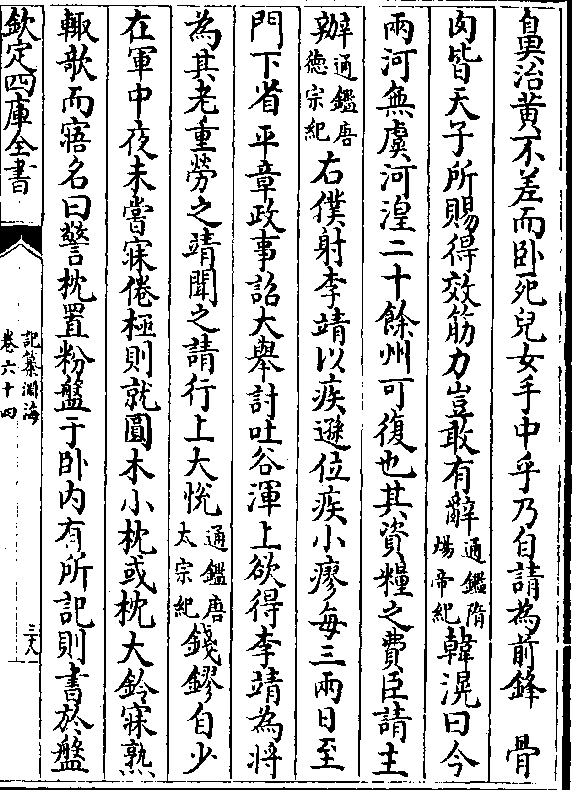 鼻治黄不差而卧死兒女手中乎乃自請為前鋒　骨
肉皆天子所賜得效筋力豈敢有辭通鑑隋煬帝紀韓滉曰今
兩河無虞河湟二十餘州可復也其資糧之費臣請主
辦通鑑唐德宗紀右僕射李靖以疾遜位疾小瘳每三兩日至
門下省平章政事詔大舉討吐谷渾上欲得李靖為將
為其老重勞之靖聞之請行上大悦通鑑唐太宗紀錢鏐自少
在軍中夜未嘗寐倦極則就圓木小枕或枕大鈴寐熟
輒欹而寤名曰警枕置粉盤于卧内有所記則書於盤
欽定四庫全書
記纂淵海
卷六十四
三十八